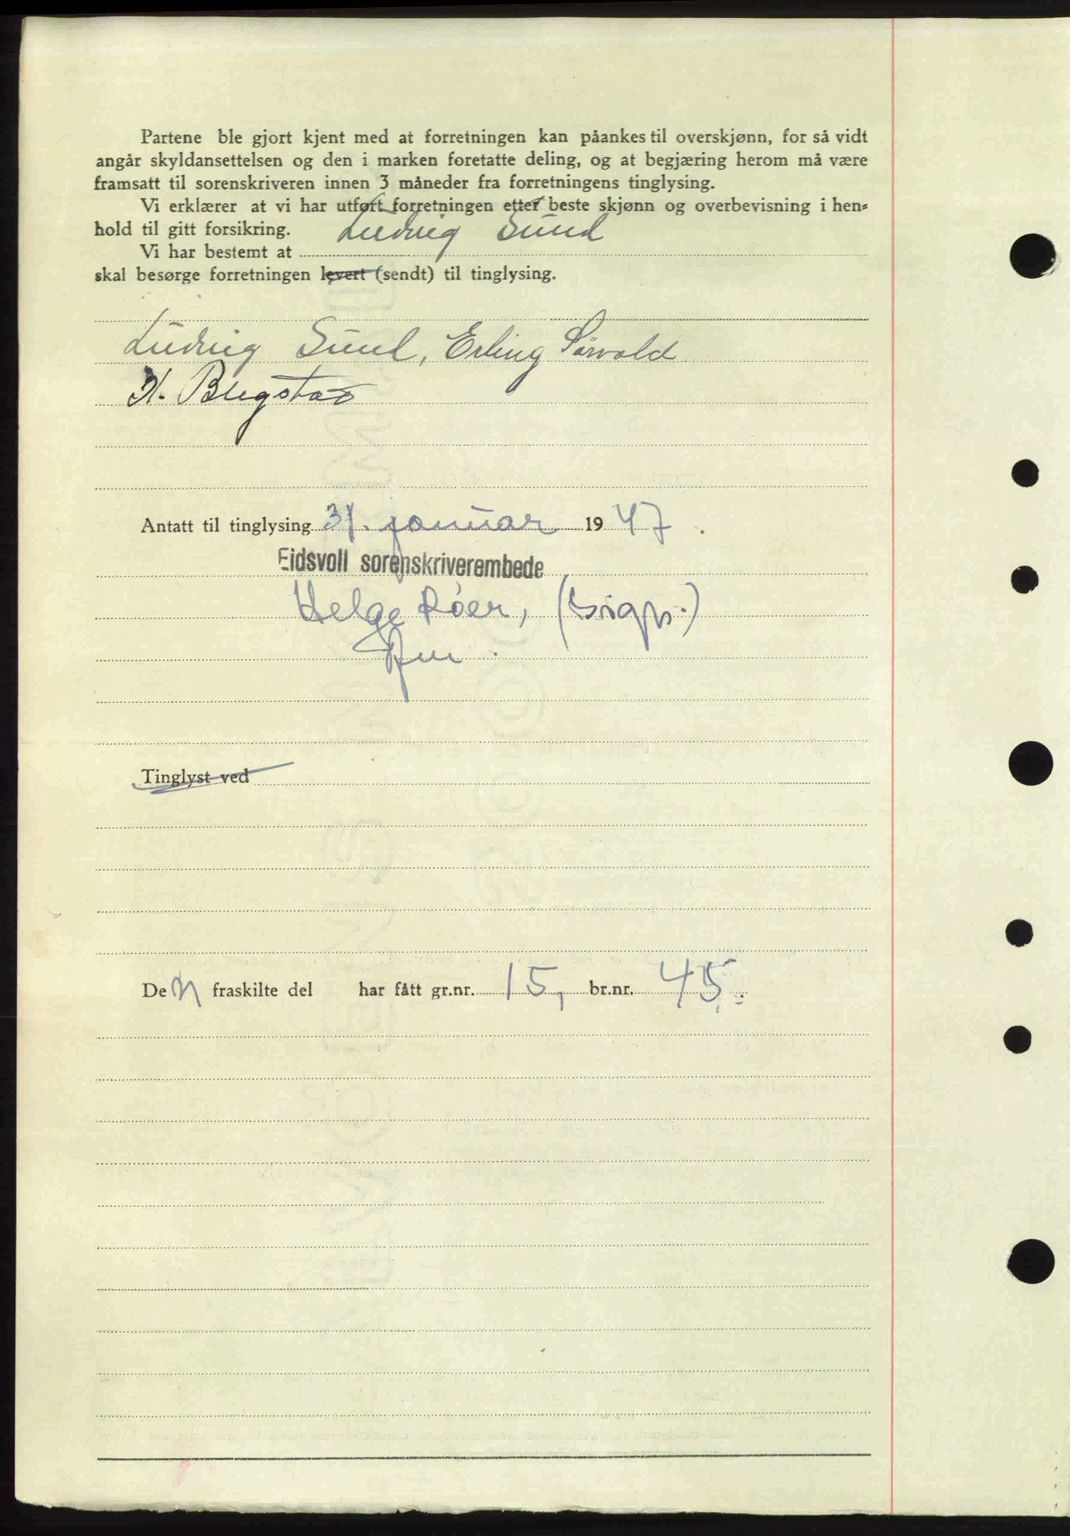 Partene ble gjort kjent med at forretningen kan påankes til overskjønn, for så vidt
angår skyldansettelsen og den i marken foretatte deling, og at begjæring herom må være
framsatt til sorenskriveren innen 3 måneder fra forretningens tinglysing.
Vi erklærer at vi har utført forretningen etter beste skjønn og overbevisning i hen-
hold til gitt forsikring.
Vi har bestemt at Ludvig Sund
skal besørge forretningen levert (sendt) til tinglysing.
Ludvig Sund, Erling Sörvold
H. Bugstad
Antatt til tinglysing 31. januar 1947.
Eidsvoll sorenskriverembede
Helge Röer,
Tinglyst ved
Den fraskilte del har fått gr.nr. 15, br.nr. 45.